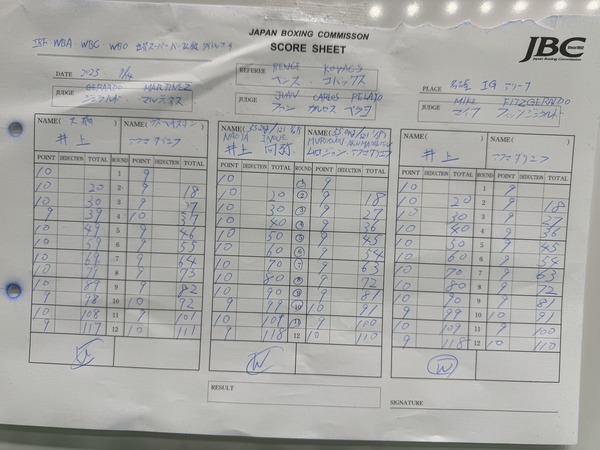 JAPAN BOXING COMMISSON
SCORE SHEET
JBC
Since 1952
Japan Boxing Commission
IBF WBA WBC WBO 世界スーパーバンタム級 タイトルマッチ
DATE 2025 9/14
REFEREE BENCE KOVACS
ベンス コバックス
PLACE 名古屋 IG アリーナ
JUDGE GERARDO MARTINEZ
ジェラルド マルチネス
JUDGE JUAN CARLOS PELAYO
ファン カルロス ペラヨ
JUDGE MIKE FITZGERALD
マイク フィッツジェラルド
NAME( 大橋 ) NAME( ウズベキスタン )
井上 アフマダリエフ
NAME( ) NAME( )
NAOYA INOUE
井上 尚弥
NAME( ) NAME( )
井上 アフマダリエフ
POINT DEDUCTION TOTAL ROUND POINT DEDUCTION TOTAL POINT DEDUCTION TOTAL ROUND POINT DEDUCTION TOTAL POINT DEDUCTION TOTAL ROUND POINT DEDUCTION TOTAL
10 1 9 10 1 9 10 1 9
10 20 2 9 18 10 20 2 9 18 10 20 2 9 18
10 30 3 9 27 10 30 3 9 27 10 30 3 9 27
9 39 4 10 37 10 40 4 9 36 10 40 4 9 36
10 49 5 9 46 10 50 5 9 45 10 50 5 9 45
10 59 6 9 55 10 60 6 9 54 10 60 6 9 54
10 69 7 9 64 10 70 7 9 63 10 70 7 9 63
10 79 8 9 73 10 80 8 9 72 10 80 8 9 72
10 89 9 9 82 10 90 9 9 81 10 90 9 9 81
9 98 10 10 92 9 99 10 10 91 9 99 10 10 91
10 108 11 9 101 10 109 11 9 100 10 109 11 9 100
9 117 12 10 111 9 118 12 10 110 9 118 12 10 110
W W W
RESULT
SIGNATURE